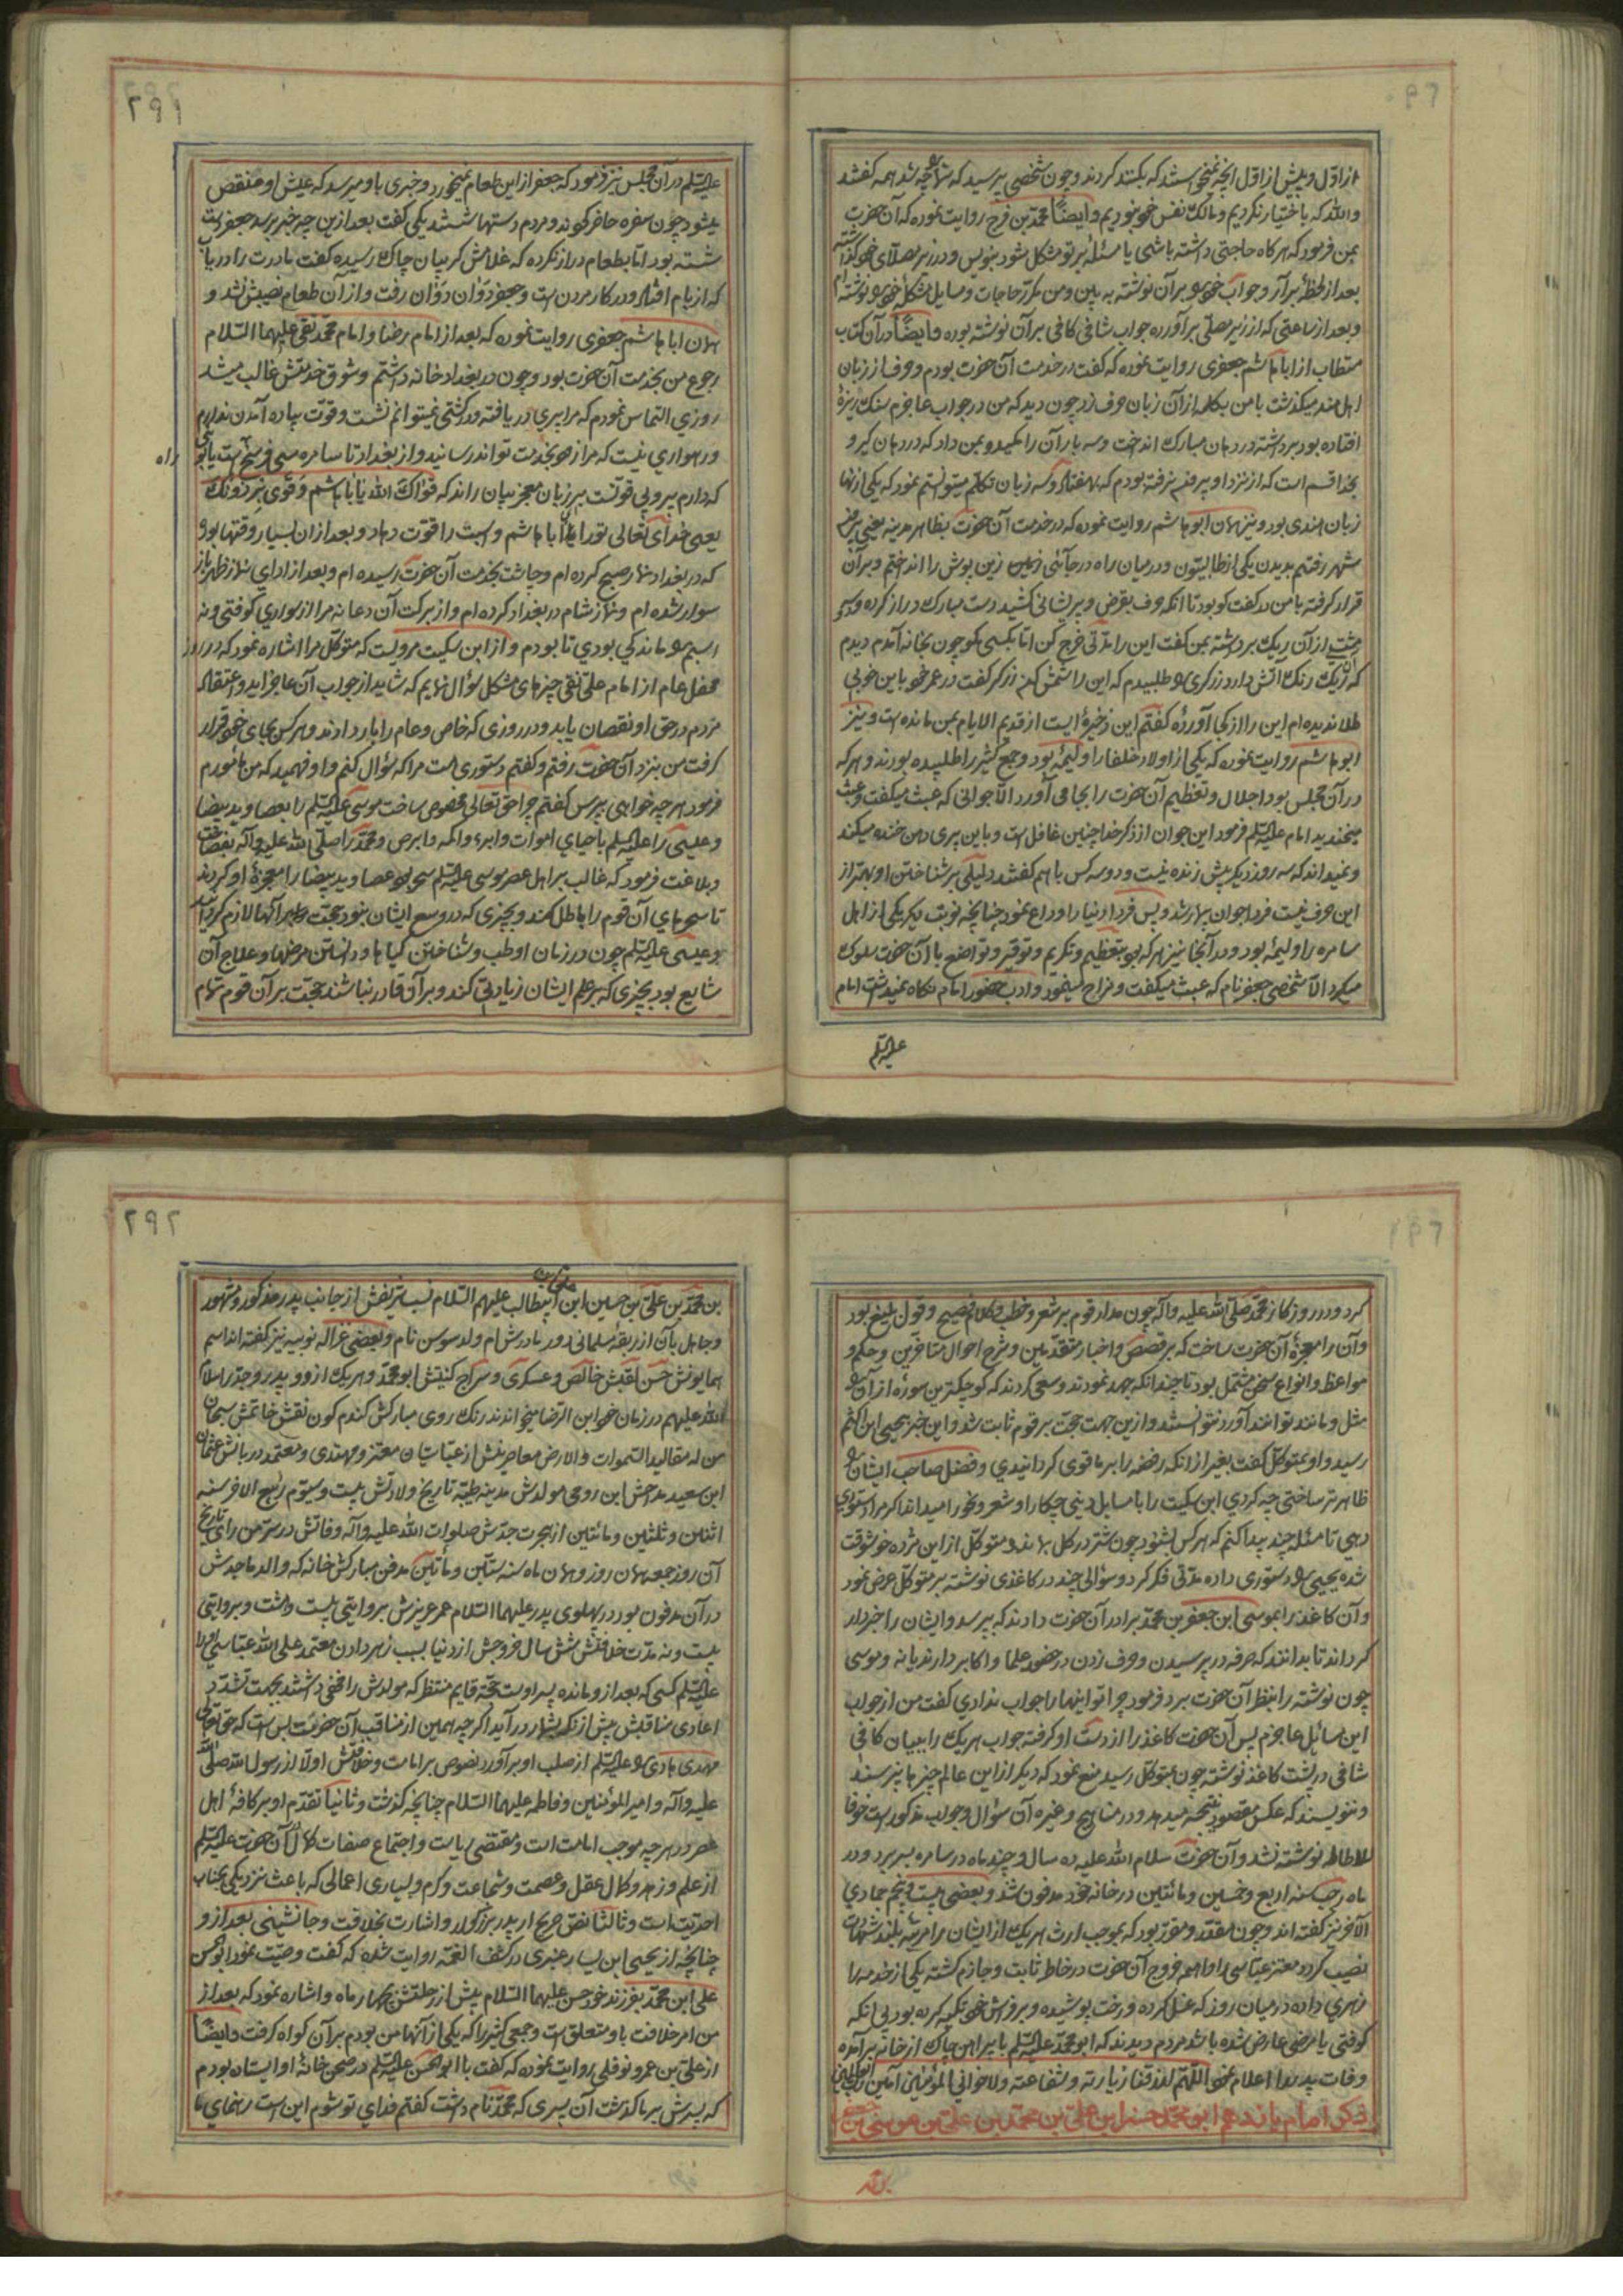 از اول و پیش از اول آنچه نمیخواستند که بکنند کردند و چون شخصی پرسید که شما را چه شد همه گفتند
والله که باختیار نکردیم و مالک نفس خود نبودیم و ایضًا محمد بن فرج روایت نموده که آن حضرت
بمن فرمود که هرکاه حاجتی داشته باشی یا مسئلهٔ بر تو مشکل شود بنویس و در زیر مصلای خود گذاشته
بعد از لحظهٔ برآر و جواب خود بر آن نوشته به بین و من مکرر حاجات و مسایل مشکلهٔ خود نوشته ام
و بعد از ساعتی که از زیر مصلی برآورده جواب شافی کافی بر آن نوشته بوده و ایضًا در آن کتاب
مستطاب از ابا هاشم جعفری روایت نموده که گفت در خدمت آن حضرت بودم و حرف از زبان
اهل هند میگذشت با من بکلمه از آن زبان حرف زد چون دید که من در جواب عاجزم سنک ریزهٔ
افتاده بود برداشته در دهان مبارک انداخت و سه بار آن را مکید و بمن داد که در دهان گیر و
بخدا قسم است که از نزد او بیرون نرفته بودم که بهفتاد و سه زبان تکلم میتوانستم نمود که یکی از آنها
زبان هندی بود و نیز همان ابو هاشم روایت نموده که در خدمت آن حضرت بظاهر مدینه یعنی بیرون
شهر رفتم بدیدن یکی از طالبیون و در میان راه در جائی زین پوش را انداختم و بر آن
قرار گرفته با من در گفت کو بود تا آنکه حرف بقرض و پریشانی کشید دست مبارک دراز کرده و
مشتی از آن ریگ برداشته بمن گفت این را مدتی خرج کن اما بکسی مگو چون بخانه آمدم دیدم
که آن ریگ رنگ آتش دارد زرگری را طلبیدم که این را شمش کن زرگر گفت در عمر خود باین خوبی
طلا ندیده ام این را از کجا آوردهٔ گفتم این ذخیرهٔ ایست از قدیم الایام بمن مانده است و نیز
ابو هاشم روایت نموده که یکی از اولاد خلفا را ولیمهٔ بود و جمع کثیر را طلبیده بودند و هر که
در آن مجلس بود اجلال و تعظیم آن حضرت را بجا می آورد الا جوانی که عبث میگفت و عبث
میخندید امام علیه السلام فرمود این جوان از ذکر خدا چنین غافل است و باین پری دهن خنده میکند
و نمیداند که سه روز دیگر پیش زنده نیست و دو سه کس با هم گفتند دلیلی بر شناختن او بهتر از
این حرف نیست فردا جوان بیمار شد و پس فردا دنیا را وداع نمود چنانچه نوبت دیگر یکی از اهل
سامره را ولیمهٔ بود و در آنجا نیز هر که بود بتعظیم و تکریم و توقیر و تواضع با آن حضرت سلوک
میکرد الا شخصی جعفر نام که عبث میگفت و مزاح مینمود و ادب حضور امام نگاه نمیداشت امام
علیه السلام
۲۹۱
علیه السلم در آن مجلس نیز فرمود که جعفر از این طعام نمیخورد و خبری باو میرسد که عیش او منقص
میشود چون سفره حاضر کردند و مردم دستها شستند یکی گفت بعد از این چه خبر برسد جعفر دست
شسته بود اما بطعام دراز نکرده که غلامش گریبان چاک رسیده گفت مادرت را دریاب
که از بام افتاده و در کار مردن است و جعفر دوان دوان رفت و از آن طعام نصیبش نشد و
همان ابا هاشم جعفری روایت نموده که بعد از امام رضا و امام محمد تقی علیهما السلام
رجوع من بخدمت آن حضرت بود و چون در بغداد خانه داشتم و شوق خدمتش غالب میشد
روزی التماس نمودم که مرا پیری دریافته و در کشتی نمیتوانم نشست و قوت پیاده آمدن ندارم
و رهواری نیست که مرا زود بخدمت تواند رسانید و از بغداد تا سامره سی فرسخ است
راه
که دارم پیر و بی قوتست بر زبان معجز بیان راند که قواک الله یا ابا هاشم و قوی برذونک
یعنی خدای تعالی تو را ای ابا هاشم و اسبت را قوت دهاد و بعد از آن بسیار وقتها بود
که در بغداد نماز صبح کرده ام و چاشت بخدمت آن حضرت رسیده ام و بعد از ادای نماز ظهر باز
سوار شده ام و نماز شام در بغداد کرده ام و از برکت آن دعا نه مرا از سواری کوفتی و نه
اسبم را ماندگی بودی تا بودم و از ابن سکیت مرویست که متوکل مرا اشاره نمود که در روز
محفل عام از امام علی نقی چیزهای مشکل سؤال نمایم که شاید از جواب آن عاجز آید و اعتقاد
مردم در حق او نقصان یابد و در روزی که خاص و عام را بار دادند و هرکس بجای خود قرار
گرفت من بنزد آن حضرت رفتم و گفتم دستوری هست مرا که سؤال کنم و او فهمید که من مامورم
فرمود هرچه خواهی بپرس گفتم چرا حق تعالی مخصوص ساخت موسی علیه السلم را بعصا و ید بیضا
و عیسی را علیه السلم باحیای اموات و ابراء اکمه و ابرص و محمد را صلی الله علیه و آله بفصاحت
و بلاغت فرمود که غالب بر اهل عصر موسی علیه السلم سحر بود عصا و ید بیضا را معجزهٔ او کردند
تا سحرهای آن قوم را باطل کند و بچیزی که در وسع ایشان نبود حجت بر آنها لازم گرداند
و عیسی علیه السلم چون در زمان او طب و شناختن گیاهها و دانستن مرضها و علاج آن
شایع بود بچیزی که بر علم ایشان زیادتی کند و بر آن قادر نباشند حجت بر آن قوم تمام
کرد و در روزگار محمد صلی الله علیه و آله چون مدار قوم بر شعر و خطب و کلام فصیح و قول بلیغ بود
و آن را معجزهٔ آن حضرت ساخت که بر قصص و اخبار متقدمین و شرح احوال متأخرین و حکم و
مواعظ و انواع سخن مشتمل بود تا چندانکه جهد نمودند و سعی کردند که کوچکترین سوره از آن را
مثل و مانند توانند آورد نتوانستند و ازین جهت حجت بر قوم ثابت شد و این خبر بیحیی ابن اکثم
رسید و او بمتوکل گفت بغیر از آنکه رفضه را بر ما قوی گردانیدی و فضل صاحب ایشان را
ظاهرتر ساختی چه کردی ابن سکیت را با مسایل دینی چکار او شعر و نحو را میداند اگر مرا دستوری
دهی تا مسئله چند پیدا کنم که هرکس بشنود چون شتر در گل بماند و متوکل از این مژده خوشوقت
شده یحیی را دستوری داده مدتی فکر کرد و سؤالی چند در کاغذی نوشته بر متوکل عرض نمود
و آن کاغذ را بموسی ابن جعفر بن محمد برادر آن حضرت دادند که بپرسد و ایشان را خبردار
گرداند تا بدانند که صرفه در پرسیدن و حرف زدن در حضور علما و اکابر دارند یا نه و موسی
چون نوشته را بنظر آن حضرت برد فرمود چرا تو اینها را جواب ندادی گفت من از جواب
این مسائل عاجزم پس آن حضرت کاغذ را از دست او گرفته جواب هریک را ببیان کافی
شافی در پشت کاغذ نوشته چون بمتوکل رسید منع نمود که دیگر از این عالم چیزها نپرسند
و ننویسند که عکس مقصود نتیجه میدهد و در مناهج و غیره آن سؤال و جواب مذکور است خوفا
للاطاله نوشته نشد و آن حضرت سلام الله علیه ده سال و چند ماه در سامره بسر برد و در
ماه رجب سنه اربع و خمسین و مائتین در خانه خود مدفون شد و بعضی بیست و پنجم جمادی
الآخر نیز گفته اند و چون مقدر و مقرر بود که بموجب ارث هریک از ایشان را مرتبه بلند شهادت
نصیب گردد معتز عباسی را واهمه خروج آن حضرت در خاطر ثابت و جازم گشته یکی از خدمه را
زهری داده در میان روز که غسل کرده و رخت پوشیده و بر فرش خود تکیه کرده بود بی آنکه
کوفتی یا مرضی عارض شده باشد مردم دیدند که ابو محمد علیه السلم با پیراهن چاک از خانه برآمده
وفات پدر را اعلام نمود اللهم ارزقنا زیارته و شفاعته ولاخوانی المؤمنین آمین رب العالمین
ذکر امام یازدهم ابو محمد حسن ابن علی بن محمد بن علی بن موسی بن جعفر
بن محمد
۲۹۲
بن محمد بن علی بن حسین ابن علی بن ابیطالب علیهم السلام نسب شریفش از جانب پدر مذکور و مشهور
و جاهل بآن از ربقهٔ مسلمانی دور مادرش ام ولد سوسن نام و بعضی غزاله نوبیه نیز گفته اند اسم
همایونش حسن لقبش خالص و عسکری و سراج کنیتش ابو محمد و هریک از او و پدر و جد را سلام
الله علیهم در زمان خود ابن الرضا میخواندند رنگ روی مبارکش گندم گون نقش خاتمش سبحان
من له مقالید السموات والارض معاصرینش از عباسیان معتز و مهتدی و معتمد دربانش عثمان
ابن سعید مداحش ابن رومی مولدش مدینه طیبه تاریخ ولادتش بیست و سیوم ربیع الاخر سنه
اثنین و ثلثین و مائتین از هجرت جدش صلوات الله علیه و آله وفاتش در سرّ من رای تاریخ
آن روز جمعه همان روز و همان ماه سنه ستین و مأتین مدفن مبارکش خانه که والد ماجدش
در آن مدفون بود در پهلوی پدر علیهما السلام عمر عزیزش بروایتی بیست و هشت و بروایتی
بیست و نه مدت خلافتش شش سال خروجش از دنیا بسبب زهر دادن معتمد علی الله عباسی او را
علیه السلم کسی که بعد از او مانده پسر اوست حجة قایم منتظر که مولدش را مخفی داشتند بجهت تشدد
اعادی مناقبش بیش از آنکه بشمار درآید اگرچه همین از مناقب آن حضرت بس است که حق تعالی
مهدی هادی را علیه السلم از صلب او برآورد نصوص بر امامت و خلافتش اولا از رسول الله صلی الله
علیه و آله و امیر المؤمنین و فاطمه علیهما السلام چنانچه گذشت و ثانیا تقدم او بر کافهٔ اهل
عصر در هرچه موجب امامت است و مقتضی ریاست و اجتماع صفات کمال در آن حضرت علیه السلم
از علم و زهد و کمال عقل و عصمت و شجاعت و کرم و بسیاری اعمالی که باعث نزدیکی بجناب
احدیت است و ثالثا نص صریح از پدر بزرگوار و اشارت بخلافت و جانشینی بعد از او
چنانچه از یحیی ابن یسار عنبری در کشف الغمه روایت شده که گفت وصیت نمود ابو الحسن
علی ابن محمد بفرزند خود حسن علیهما السلام پیش از رحلتش بچهار ماه و اشاره نمود که بعد از
من امر خلافت باو متعلق است و جمعی کثیر را که یکی از آنها من بودم بر آن گواه گرفت و ایضًا
از علی بن عمرو نوفلی روایت نموده که گفت با ابو الحسن علیه السلم در صحن خانهٔ او ایستاده بودم
که پسرش بر ما گذشت آن پسری که محمد نام داشت گفتم فدای تو شوم این است رهنمای ما